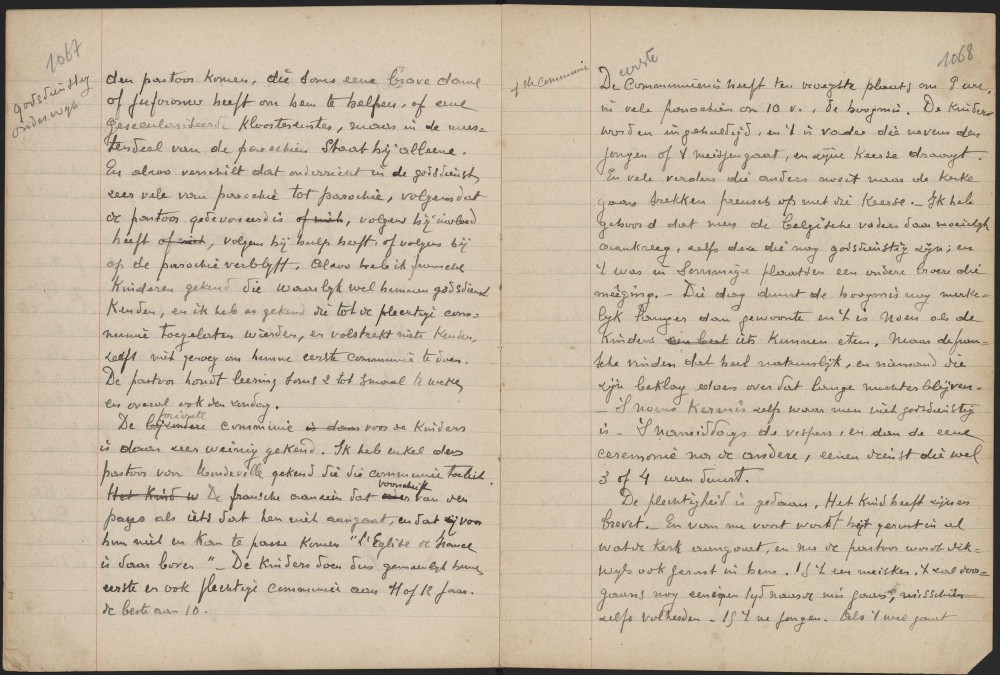 1067
godsdienstig
onderwijs
den pastoor komen, die soms eene brave dame
of jufvrouw heeft om hem te helpen, of eene
geseculariseerde kloosterzuster, maar in de mees-
tendeel van de parochien staat hij alleene.
En alzoo verschilt dat onderricht in de godsdienst
zeer vele van parochie tot parochie, volgens dat
de pastoor gedevoueerd is of niet, volgens hij invloed
heeft of niet, volgens hij hulp heeft, of volgens hij
op de parochie verblyft. Alzoo heb ik fransche
kinderen gekend die waarlyk wel hunnen godsdienst
kenden, en ik heb er gekend die tot de plechtige com-
munie toegelaten wierden, en volstrekt niets kenden,
zelfs niet genoeg om hunne eerste communie te doen.
De pastoor houdt leering soms 2 tot 3 maal te weke,
en overal ook den zondag.
De byzondere private communie is daar voor de kinders
is daar zeer weinig gekend. Ik heb enkel den
pastoor van gekend die die communie toeliet.
Het kind w De fransche aanzien dat voorschrift van den
paus als iets dat hen niet aangaat, en dat voor
hun niet en kan te passe komen "l'Eglise de France
is daar boven" - De kinders doen dus gemeenlyk hunne
eerste en ook plechtige communie aan 11 of 12 jaar.
de beste aan 10.
1068
eerste
plle communie
De Communiemis heeft ten vroegste plaats om 9 ure,
in vele parochien om 10 u., de hoogmis. De kinders
worden ingehuldigd, en 't is vader die nevens den
jongen of 't meisjen gaat, en zijne keerse draagt.
En vele vaders die anders nooit naar de kerke
gaan trekken preusch op met die keerse. - Ik heb
gehoord dat men de belgische vaders daar moeielyk
aankreeg, zelfs deze die nog godsdienstig zijn; en
't was in sommige plaatsen een oudere broer die
meêging. - Die dag duurt de hoogmis nog merke-
lyk langer dan gewoonte en 't is noen als de
kinders iets kunnen eten. Maar de fran-
sche vinden dat heel natuurlijk, en niemand die
zijn beklag doen over dat lange nuchter blijven.
- 's Noens kermis zelfs waar men niet godsdienstig
is. - 's Namiddags de vespers, en dan de eene
ceremonie na de andere, eenen dienst die wel
3 of 4 uren duurt.
De plechtigheid is gedaan, Het kind heeft zijnen
brevet. En van nu voort wordt het gerust in al
wat de kerk aangaat, en nu de pastoor wordt dik-
wyls ook gerust in hem. Is 't een meisken, 't zal door-
gaans nog eenigen tyd naar de mis gaan, misschien
zelfs volherden - Is 't ne jongen. Als 't wel gaat